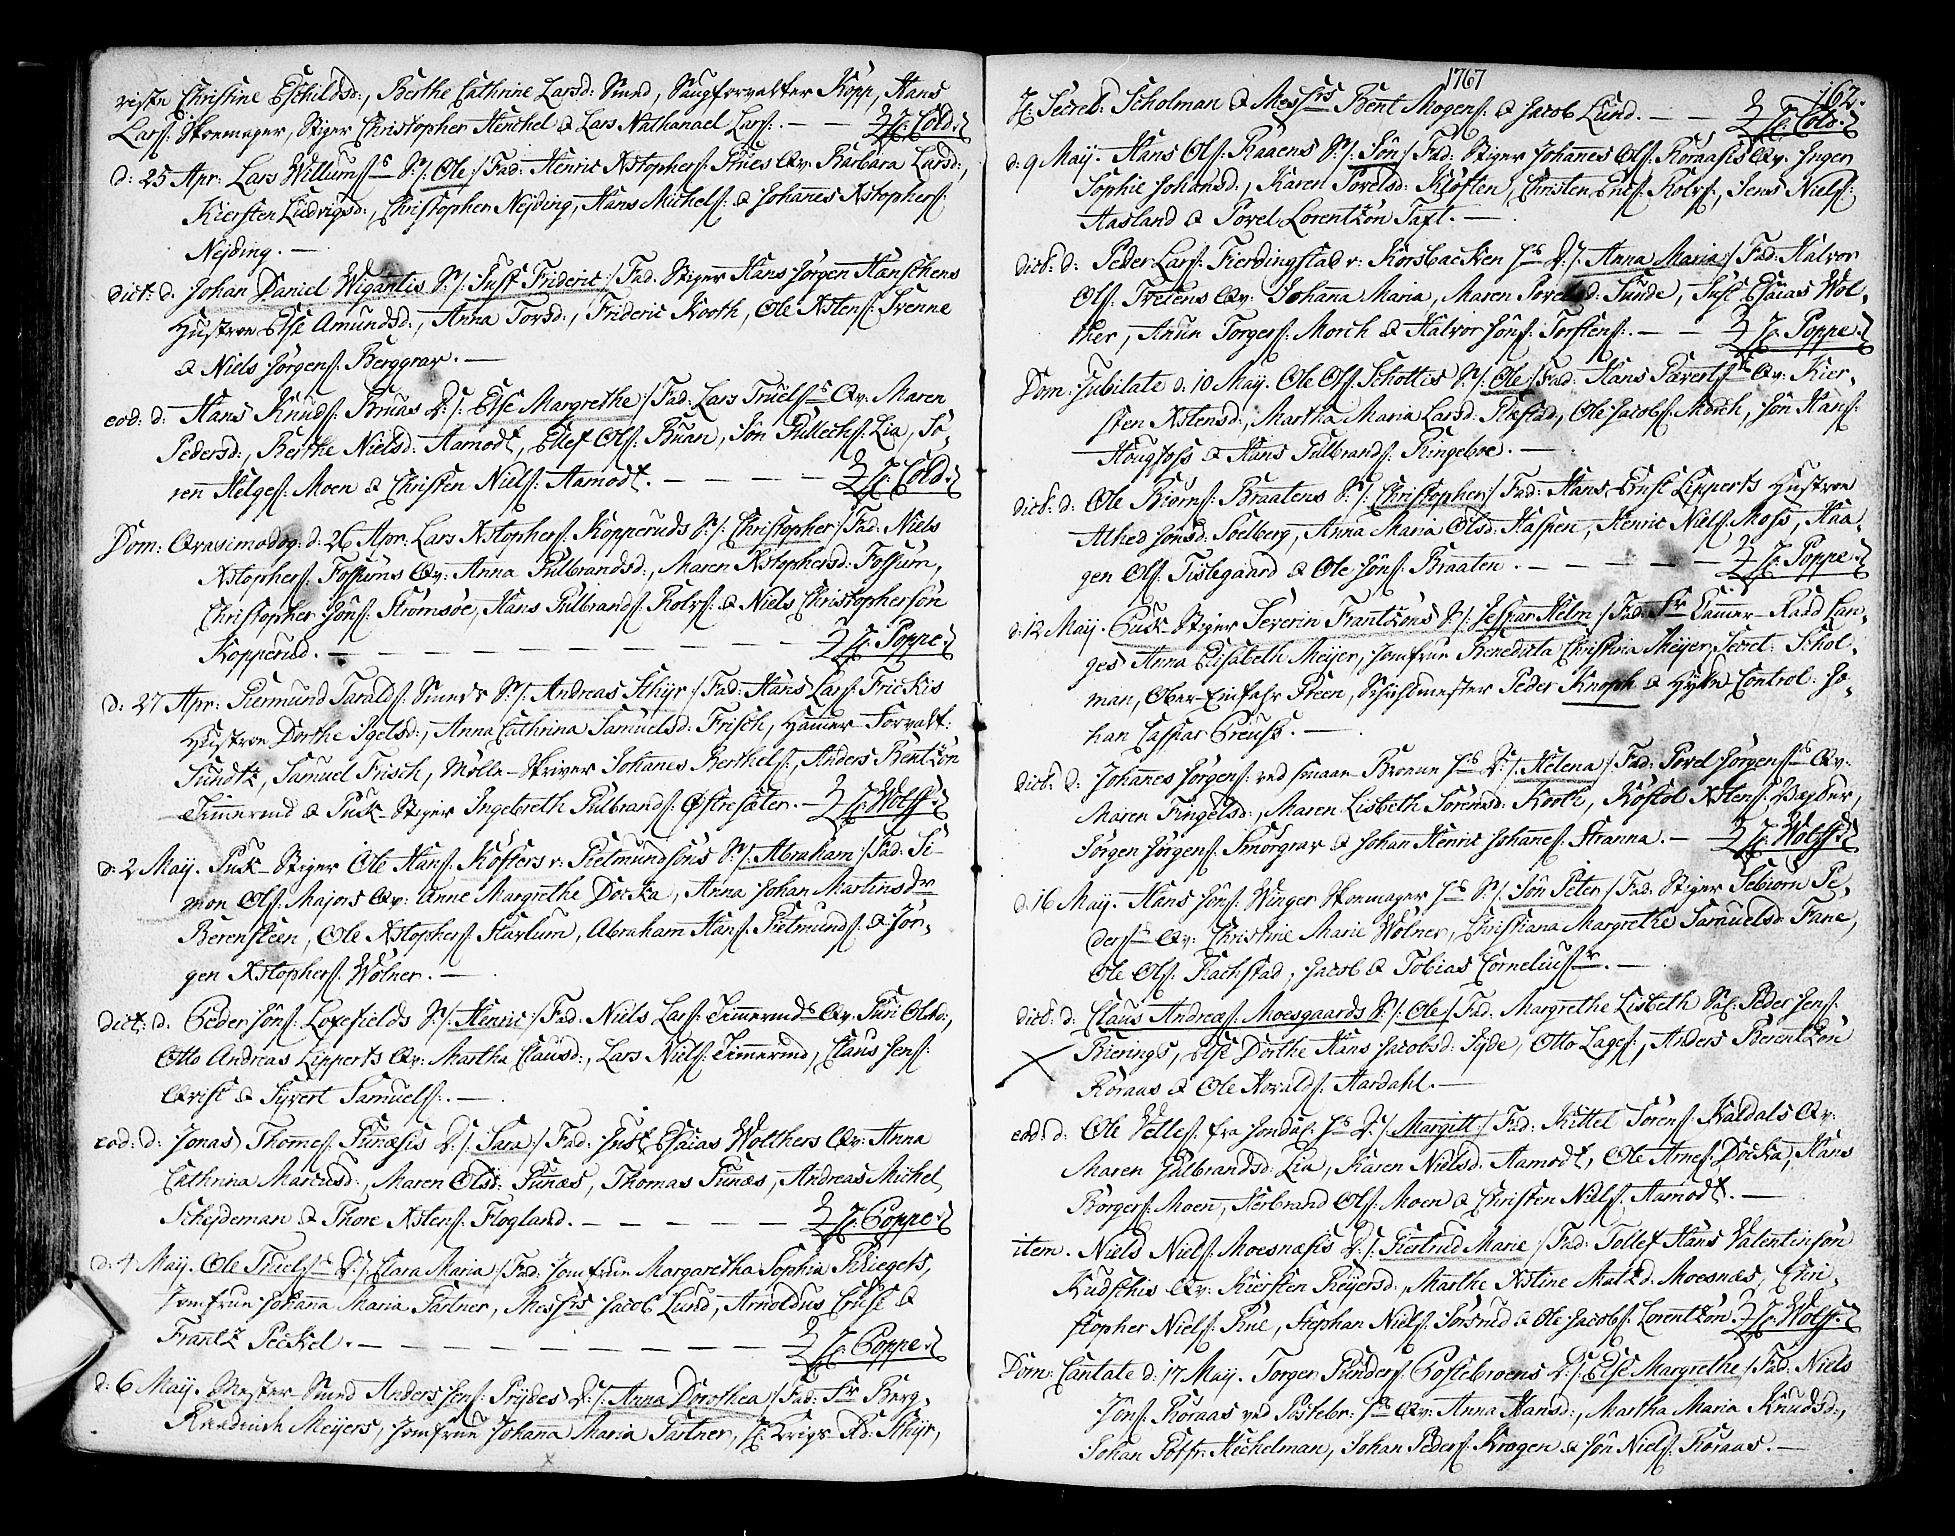 riste Christine Eschildsd:, Berthe Cathrine Larsd: Smed, Saugforvalter Kopp, Hans
Lars: Skomager, Stiger Christopher Henchel & Lars Nathanael Lars:. — — H: Cold.
d: 25 Apr: Lars Willums:s S:/: Ole:/ Fad: Henric Xstophers: Qv: Barbara Larsd:,
Kiersten Ludvigsd:, Christopher Nejding, Hans Michels: & Johanes Xstophers:
Nejding. —
dict: d. Johan Daniel Wigantis S:/: Just Frideric:/ Fad: Stiger Hans Jörgen Hanschens
Hustroe Else Amundsd:, Anna Torsd:, Frideric Korth, Ole Xstens: Svenne
& Niels Jörgens: Berggrav. —
eod: d: Hans Knuds: Bruas D:/: Else Margrethe:/ Fad: Lars Truels:s Qv: Maren
Pedersd:, Berthe Nielsd: Aamodt, Ellef Ols: Buan, Jön Gullechs: Lia, Sö-
ren Helges: Moen & Christen Niels: Aamodt. — — — — H: Cold.
Dom: Qvasimodog: d: 26 Apr: Lars Xstophers: Kopperuds S:/: Christopher:/ Fad: Niels
Xstophers: Fossums Qv: Anna Gulbrandsd:, Maren Xstophersd: Fossum,
Christopher Jöns: Strömsöe, Hans Gulbrands: Rolvs: & Niels Christophersön
Kopperud. — — — — — — — — H: Poppe.
d: 27 Apr: Germund Taralds: Smeds S:/: Andreas Schijr:/ Fad: Hans Lars: Frickis
Hustroe Dorthe Igelsd:, Anna Cathrina Samuelsd: Frisch, Hamer-Forvalt:
Sundtz, Samuel Frisch, Mölle-Skriver Johanes Berthels:, Anders Bentzön
Timmerud & Puk-Stiger Ingebreth Gulbrands: Östresæter. — H: Wolff.
d: 2 May. Puk-Stiger Ole Hans: Kösters v: Gietmundsöns S:/: Abraham:/ Fad: Si-
mon Ols: Majors Qv: Anne Margrethe Docka, Anna Johan Martinsdr
Berensteen, Ole Xstophers: Skarlum, Abraham Hans: Gietmunds: & Jör-
gen Xstophers: Wölner. —
dict: d. Peder Jöns: Loxefields S:/: Henric:/ Fad: Niels Lars: Timmeruds Qv: Turi Olsd:,
Otto Andreas Lipperts Qv: Martha Clausd:, Lars Niels: Timmerud, Claus Jens:
Qvist & Syvert Samuels:. —
eod: d: Jonas Thomes: Funæsis D:/: Sara:/ Fad: Just Esaias Wolthers Qv: Anna
Cathrina Marcusd:, Maren Olsd: Funæs, Thomas Funæs, Andreas Michel
Schejdeman & Thore Xstens: Flogland. — — — — — H: Poppe.
d: 4 May. Ole Truels:s D:/: Clara Maria:/ Fad: Jomfrue Margaretha Sophia Kriegers,
Jomfrue Johana Maria Gartner, Messrs Jacob Lund, Arnoldus Cruse &
Frantz Peckel. — — — — — — — — H: Poppe.
d: 6 May. Mester Smed Anders Jens: Prydes D:/: Anna Dorothea:/ Fad: Fr Berg-
Meyers, Jomfrue Johana Maria Gartner, H: Krigs Rd: Schijr,

1767
162.
H: Secret: Scholman & Messrs Bent Mogens: & Jacob Lund. — — H: Cold.
d: 9 May. Hans Ols: Raaens S:/: Jön:/ Fad: Stiger Johannes Ols: Roraasis Qv: Inger
Sophie Johansd:, Karen Povelsd: Klöften, Christen Ens: Rolvs:, Jens Niels:
Aasland & Povel Lorentzön Taft. —
dict: d: Peder Lars: Fierdingstad v: Korsbacken Hs D:/: Anna Maria:/ Fad: Halvor
Ols: Tretens Qv: Johanna Maria, Maren Povelsd: Sunde, Just Esaias Wol-
ther, Anun Torgers: Morch & Halvor Jöns: Torstens:. — — H: Poppe.
Dom: Jubilate d: 10 May. Ole Ols: Schottis S:/: Ole:/ Fad: Hans Everts:s Qv: Kier-
sten Xstensd:, Martha Maria Larsd: Plæstad, Ole Jacobs: Morch, Jön Hans:
Hougfoss & Hans Gulbrands: Ringeboe. —
dict: d: Ole Biörns: Braatens S:/: Christopher:/ Fad: Hans Ernst Lipperts Hustroe
Alhed Jonsd: Soelberg, Anna Maria Olsd: Kassen, Henric Niels: Moss, Haa-
gen Ols: Tislegaard & Ole Jöns: Braaten. — — — — H: Poppe.
d: 12 May. Puck-Stiger Severin Frantzöns S:/: Jespar Helm:/ Fad: Fr Camer-Raad Lan-
ges Anna Elisabeth Meijer, Jomfrue Benedicta Christina Meijer, Secret: Schol-
man, Ober-Einfahr Steen, Schichtmester Peder Knoph & Hytte-Control: Jo-
han Caspar Preuss. —
dict: d: Johannes Jörgens: ved smaae Broene Hs D:/: Helena:/ Fad: Povel Jörgens:s Qv:
Maren Fingelsd:, Maren Lisbeth Sörensd: Korth, Köstol Xstens: Bægker,
Jörgen Jörgens: Smörgrav & Johan Henric Johanes: Stranna. — H: Wolff.
d: 16 May. Hans Jöns: Winger Skomager Hs S:/: Jön Peter:/ Fad: Stiger Tebiorn Pe-
ders:s Qv: Christine Marie Wölner, Christiana Margrethe Samuelsd: Fane,
Ole Ols: Rachstad, Jacob & Tobias Cornelius:r. —
dict: d: Claus Andreæs: Moesgaards S:/: Ole:/ Fad: Margrethe Lisbeth Sal: Peder Jens:
Bierings, Else Dorthe Hans Jacobsd: Syde, Otto Lages:, Anders Berentzön
Röraas & Ole Hovalds: Hardahl. —
eod: d: Ole Velles: fra Jondal Hs D:/: Margitt:/ Fad: Kittel Sörens: Kaldals Qv:
Maren Gulbrandsd: Lia, Karen Nielsd: Aamodt, Ole Arnes: Docka, Hans
Börgers: Moen, Herbrand Ols: Moen & Christen Niels: Aamodt. —
item. Niels Niels: Moesnæsis D:/: Giertrud Marie:/ Fad: Tollef Hans Valentinsön
Kudschis Qv: Kiersten Reijersd:, Marthe Xstine Matzd: Moesnæs, Chri-
stopher Niels: Gine, Stephan Niels: Jörsrud & Ole Jacobs: Lorentzön. H: Wolff.
Dom: Cantate d: 17 May. Torger Gunders: Postebroens D:/: Else Margrethe:/ Fad: Niels
Jöns: Röraas ved Postebr: Hs Qv: Anna Hansd:, Martha Maria Knudsd:,
Johan Potfr: Hechelman, Johan Peders: Kragen & Jön Niels: Röraas. —